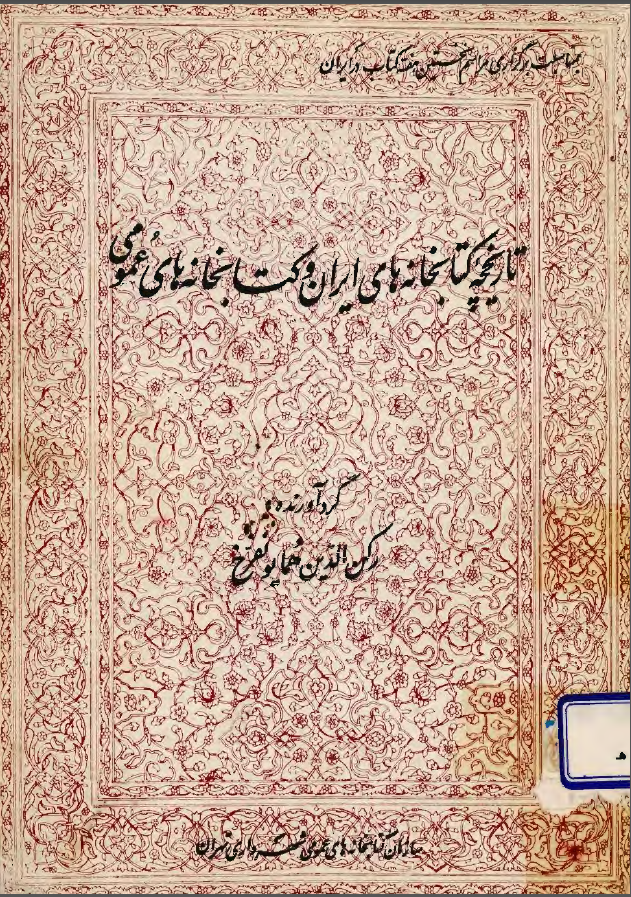 بمناسبت برگزاری مراسم نخستین هفته کتاب در ایران
تاریخچه کتابخانه های ایران و کتابخانه های عمومی
گردآورنده:
رکن الدین همایونفرخ
سازمان کتابخانه های عمومی شهرداری تهران
ﻫ